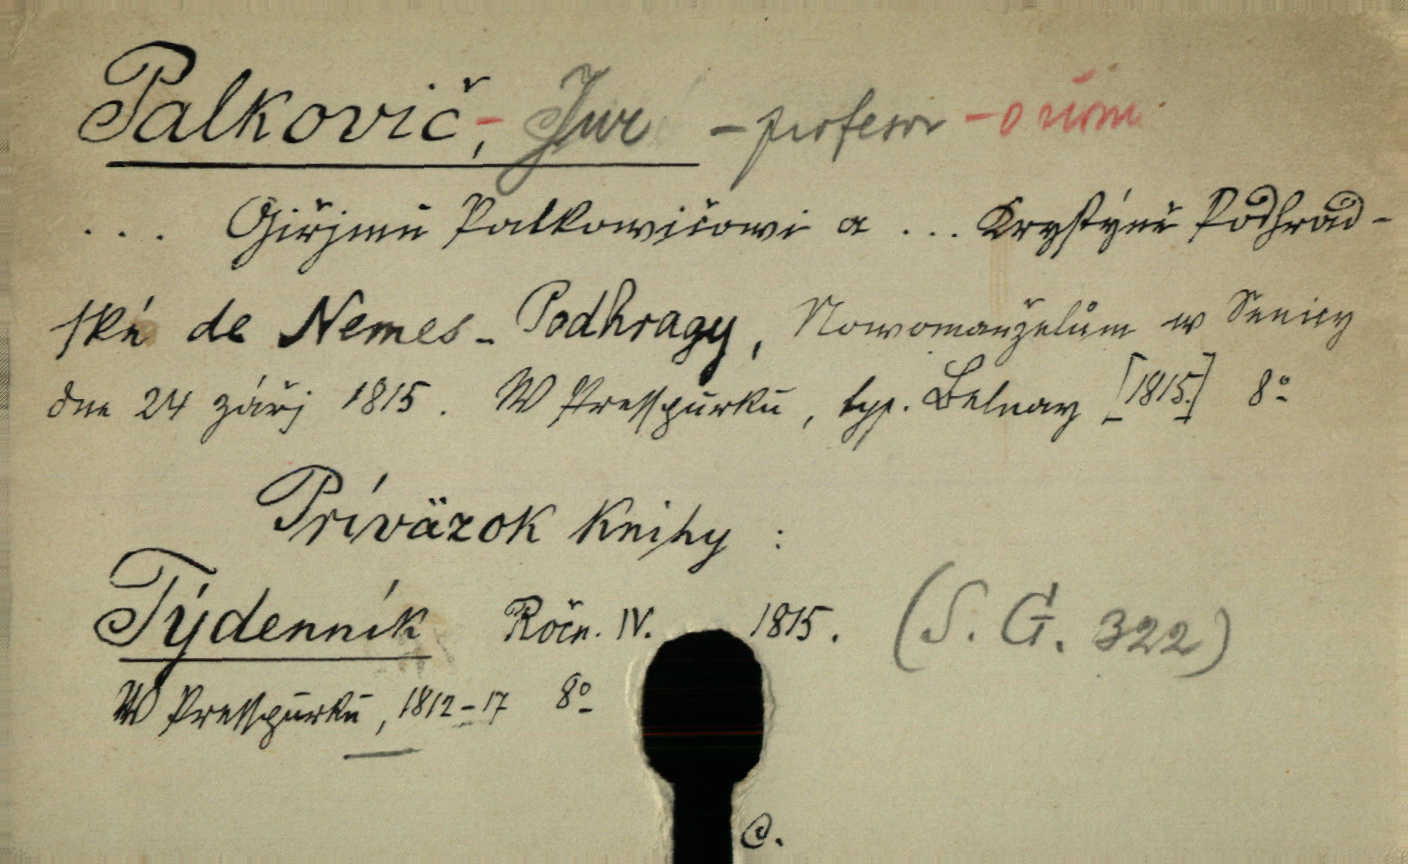 Palkovič, - Jur - profesor - o ňom
.... Giřjmu Palkowičowi a ... Krystýně Podhrad-
ské de Nemes-Podhragy, Nowomanželům w Senicy
dne 24 zářj 1815. W Presspurku, typ. Belnay [1815.] 8º
Príväzok knihy :
Týdenník Ročn. IV. 1815. (S. G. 322)
W Presspurku, 1812-17 8º